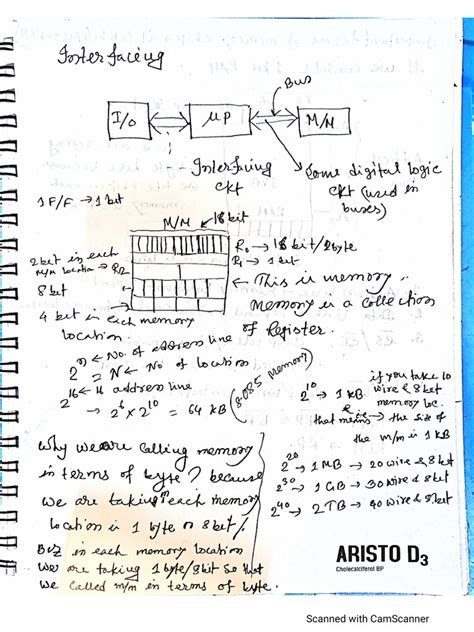 Interfacing
Bus
I/O
μP
M/M
Interfacing
ckt
Some digital logic
ckt (used in
buses)
1 F/F → 1 bit
M/M
bit
2 bit in each
M/M location → R2
R0 → bit/2byte
R1 → 1 bit
8 bit
← This is memory.
Memory is a collection
of Register.
4 bit in each memory
location.
2^n ← No. of address line
= N ← No of location
2^16 ← 16 address line
→ 2^6 × 2^10 = 64 KB (8085 memory)
if you take 10
wire & 8 bit
memory loc.
2^10 → 1 KB
that means → the size of
the m/m is 1 KB
2^20 → 1 MB → 20 wire & 8 bit
2^30 → 1 GB → 30 wire & 8 bit
2^40 → 2 TB → 40 wire & 8 bit
Why we are calling memory
in terms of byte? because
we are taking in each memory
location is 1 byte or 8 bit.
Bcz in each memory location
we are taking 1 byte/8 bit so that
we called m/m in terms of byte.
ARISTO D3
Cholecalciferol BP
Scanned with CamScanner